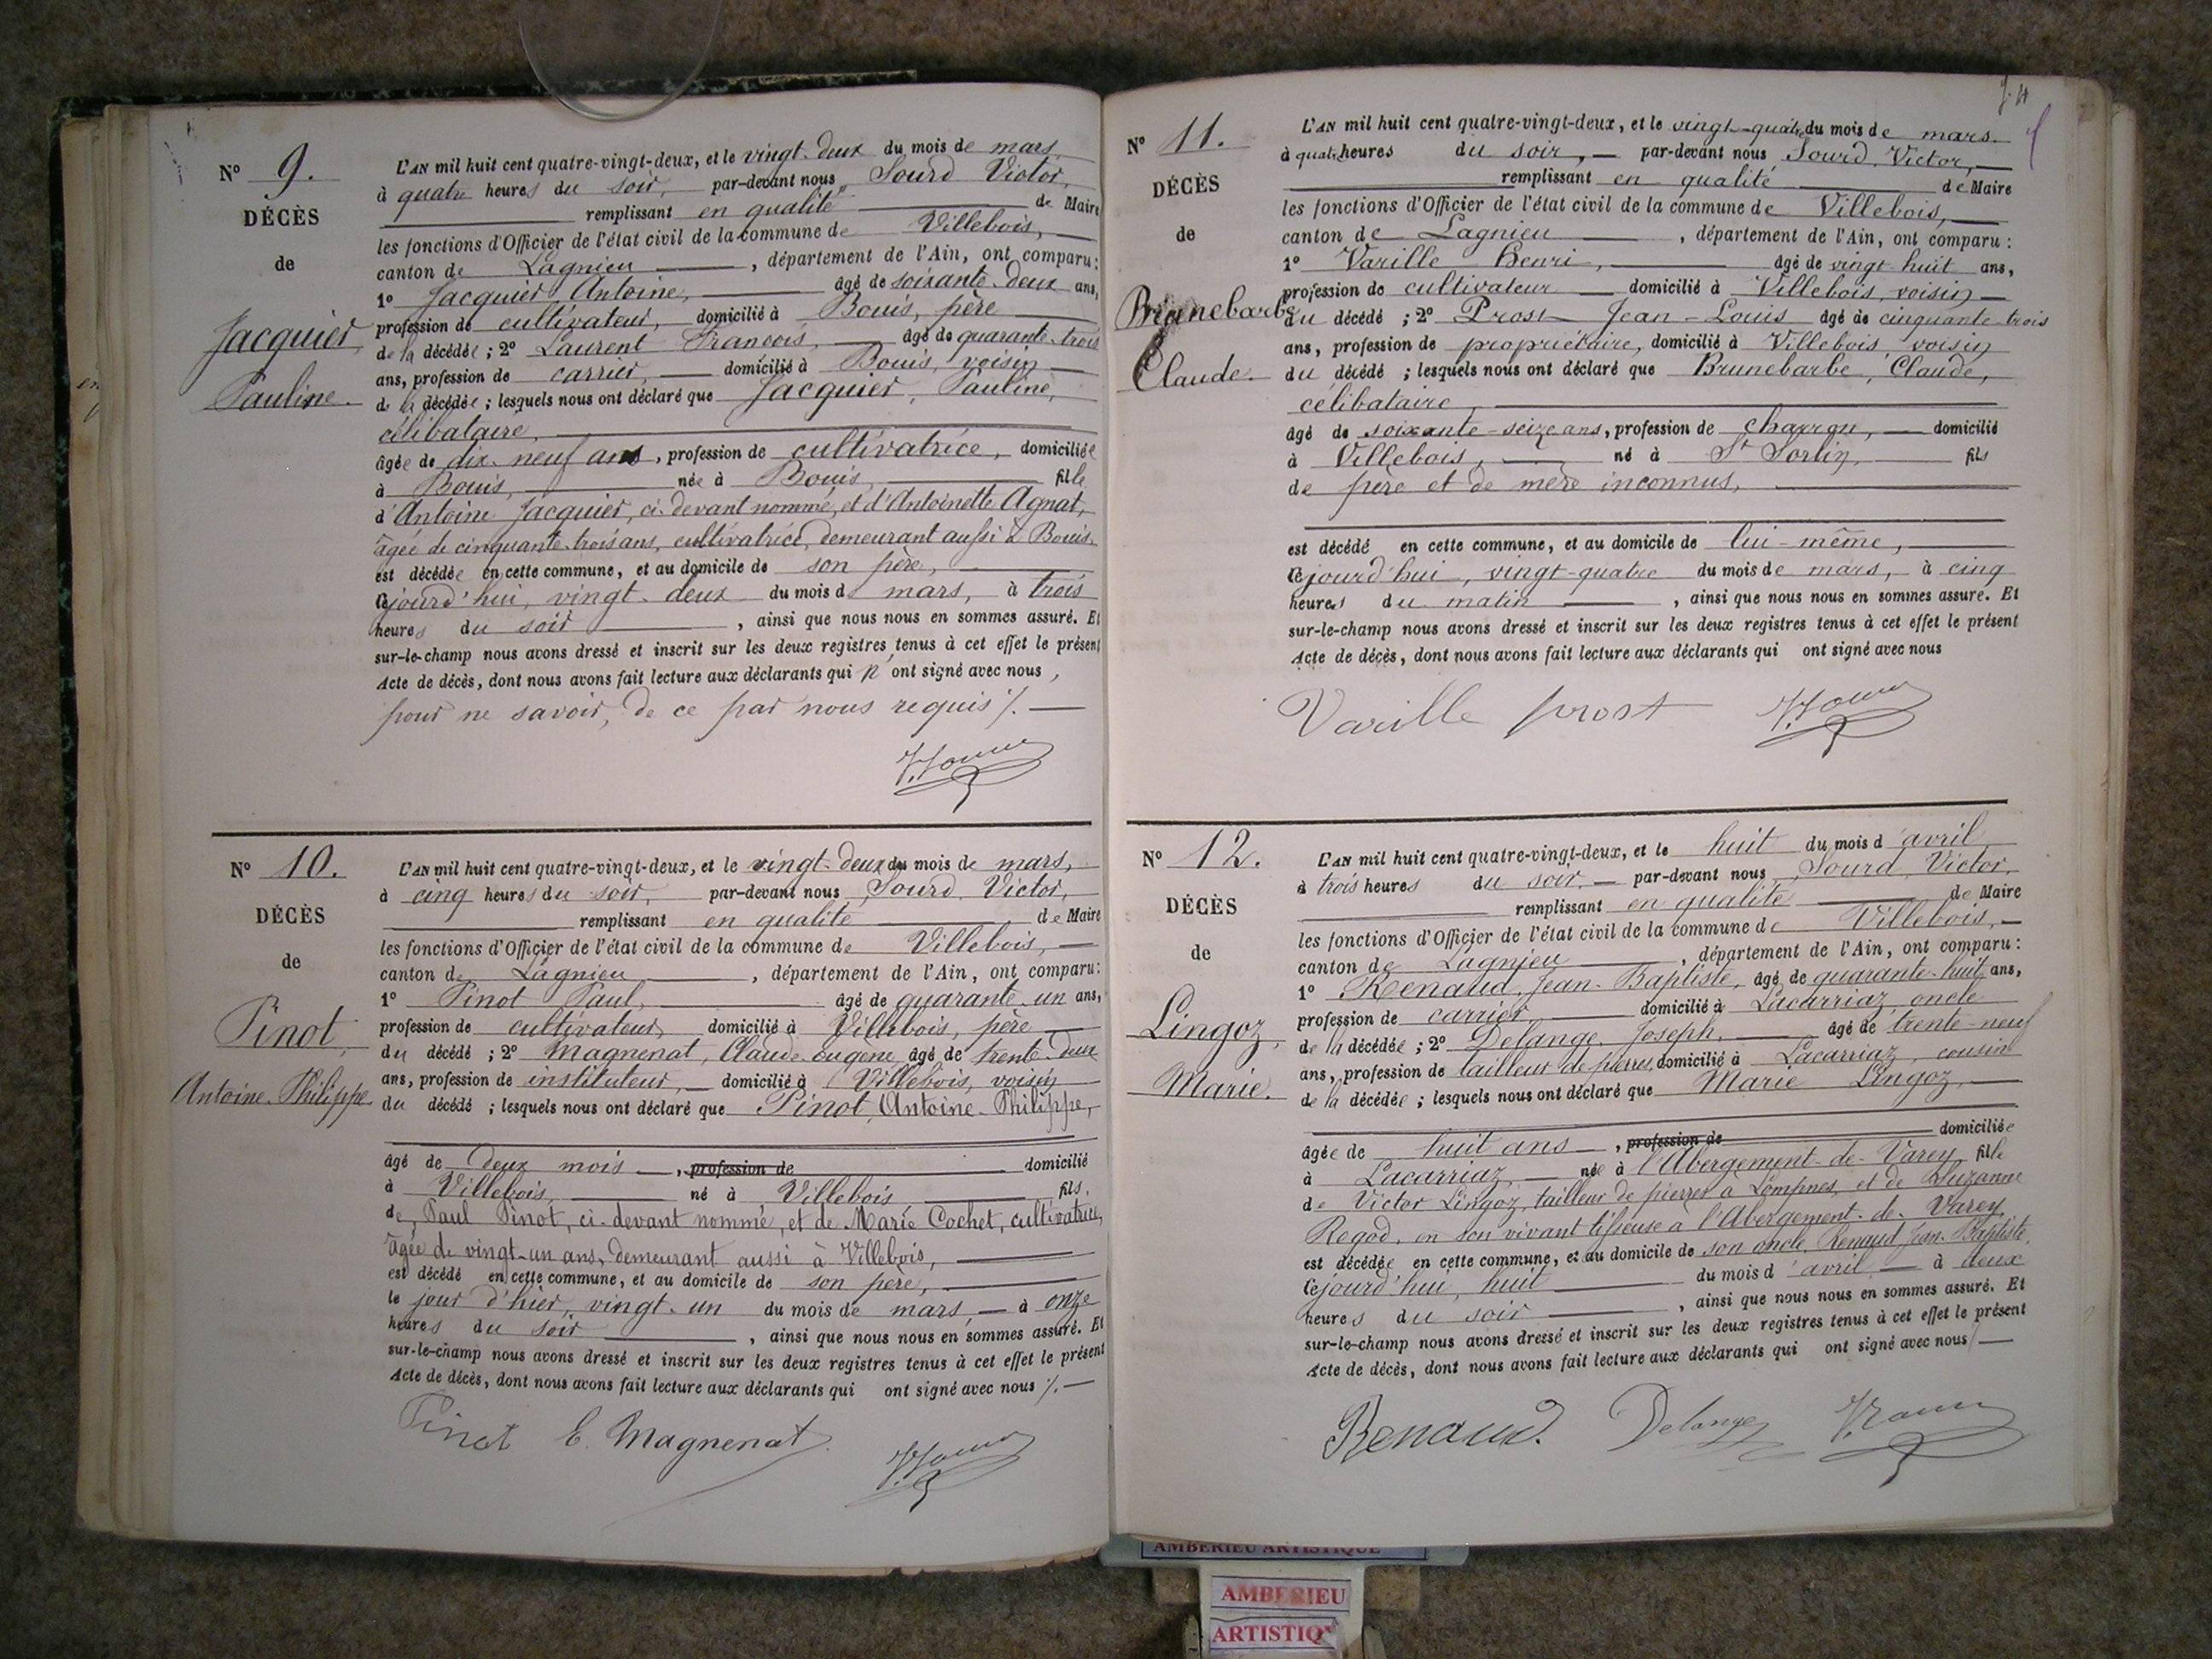 N° 9.
DÉCÈS
de
Jacquier,
Pauline.
L'AN mil huit cent quatre-vingt-deux, et le vingt-deux du mois de mars
à quatre heures du soir, par-devant nous Sourd Victor,
remplissant en qualité de Maire
les fonctions d'Officier de l'état civil de la commune de Villebois,
canton de Lagnieu, département de l'Ain, ont comparu:
1° Jacquier Antoine, âgé de soixante-deux ans,
profession de cultivateur, domicilié à Bouis, père
de la décédée; 2° Laurent François, âgé de quarante-trois
ans, profession de carrier, domicilié à Bouis, voisin
de la décédée; lesquels nous ont déclaré que Jacquier, Pauline,
célibataire,
âgée de dix-neuf ans, profession de cultivatrice, domiciliée
à Bouis, née à Bouis, fille
d'Antoine Jacquier, ci-devant nommé, et d'Antoinette Agnat,
âgée de cinquante-trois ans, cultivatrice, demeurant aussi à Bouis,
est décédée en cette commune, et au domicile de son père,
Cejourd'hui, vingt-deux du mois de mars, à trois
heures du soir, ainsi que nous nous en sommes assuré. Et
sur-le-champ nous avons dressé et inscrit sur les deux registres tenus à cet effet le présent
Acte de décès, dont nous avons fait lecture aux déclarants qui n'ont signé avec nous,
pour ne savoir, de ce par nous requis ./. 
N° 10.
DÉCÈS
de
Pinot,
Antoine-Philippe
L'AN mil huit cent quatre-vingt-deux, et le vingt-deux du mois de mars,
à cinq heures du soir, par-devant nous Sourd Victor,
remplissant en qualité de Maire
les fonctions d'Officier de l'état civil de la commune de Villebois,
canton de Lagnieu, département de l'Ain, ont comparu:
1° Pinot Paul, âgé de quarante-un ans,
profession de cultivateur, domicilié à Villebois, père
du décédé; 2° Magnenat, Claude-Eugène, âgé de trente-deux
ans, profession de instituteur, domicilié à Villebois, voisin
du décédé; lesquels nous ont déclaré que Pinot, Antoine-Philippe,
âgé de deux mois, profession de domicilié
à Villebois, né à Villebois fils,
de, Paul Pinot, ci-devant nommé, et de Marie Cochet, cultivatrice,
âgée de vingt-un ans, demeurant aussi à Villebois,
est décédé en cette commune, et au domicile de son père,
le jour d'hier, vingt-un du mois de mars, à onze
heures du soir, ainsi que nous nous en sommes assuré. Et
sur-le-champ nous avons dressé et inscrit sur les deux registres tenus à cet effet le présent
Acte de décès, dont nous avons fait lecture aux déclarants qui ont signé avec nous ./.
Pinot E. Magnenat
N° 11.
DÉCÈS
de
Brunebarbe
Claude.
L'AN mil huit cent quatre-vingt-deux, et le vingt-quatre du mois de mars.
à quatre heures du soir, par-devant nous Sourd Victor,
remplissant en qualité de Maire
les fonctions d'Officier de l'état civil de la commune de Villebois,
canton de Lagnieu, département de l'Ain, ont comparu:
1° Varille Henri, âgé de vingt-huit ans,
profession de cultivateur domicilié à Villebois, voisin
du décédé; 2° Prost Jean-Louis âgé de cinquante-trois
ans, profession de propriétaire, domicilié à Villebois, voisin
du décédé; lesquels nous ont déclaré que Brunebarbe, Claude,
célibataire,
âgé de soixante-seize ans, profession de charron, domicilié
à Villebois, né à St Sorlin, fils
de père et de mère inconnus,
est décédé en cette commune, et au domicile de lui-même,
Cejourd'hui, vingt-quatre du mois de mars, à cinq
heures du matin, ainsi que nous nous en sommes assuré. Et
sur-le-champ nous avons dressé et inscrit sur les deux registres tenus à cet effet le présent
Acte de décès, dont nous avons fait lecture aux déclarants qui ont signé avec nous
Varille prost
N° 12.
DÉCÈS
de
Lingoz,
Marie.
L'AN mil huit cent quatre-vingt-deux, et le huit du mois d'avril
à trois heures du soir, par-devant nous Sourd Victor,
remplissant en qualité de Maire
les fonctions d'Officier de l'état civil de la commune de Villebois,
canton de Lagnieu, département de l'Ain, ont comparu:
1° Renaud, Jean-Baptiste, âgé de quarante-huit ans,
profession de carrier, domicilié à Lacarriaz, oncle
de la décédée; 2° Delange, Joseph, âgé de trente-neuf
ans, profession de tailleur de pierres, domicilié à Lacarriaz, cousin
de la décédée; lesquels nous ont déclaré que Marie Lingoz,
âgée de huit ans, profession de domiciliée
à Lacarriaz, née à l'Abergement-de-Varey, fille
de Victor Lingoz, tailleur de pierres à Lompnes, et de Suzanne
Regod, en son vivant tisseuse à l'Abergement-de-Varey
est décédée en cette commune, et au domicile de son oncle, Renaud Jean-Baptiste,
Cejourd'hui, huit du mois d'avril à deux
heures du soir, ainsi que nous nous en sommes assuré. Et
sur-le-champ nous avons dressé et inscrit sur les deux registres tenus à cet effet le présent
Acte de décès, dont nous avons fait lecture aux déclarants qui ont signé avec nous
Renaud. Delange
AMBERIEU ARTISTIQUE
AMBERIEU
ARTISTIQ